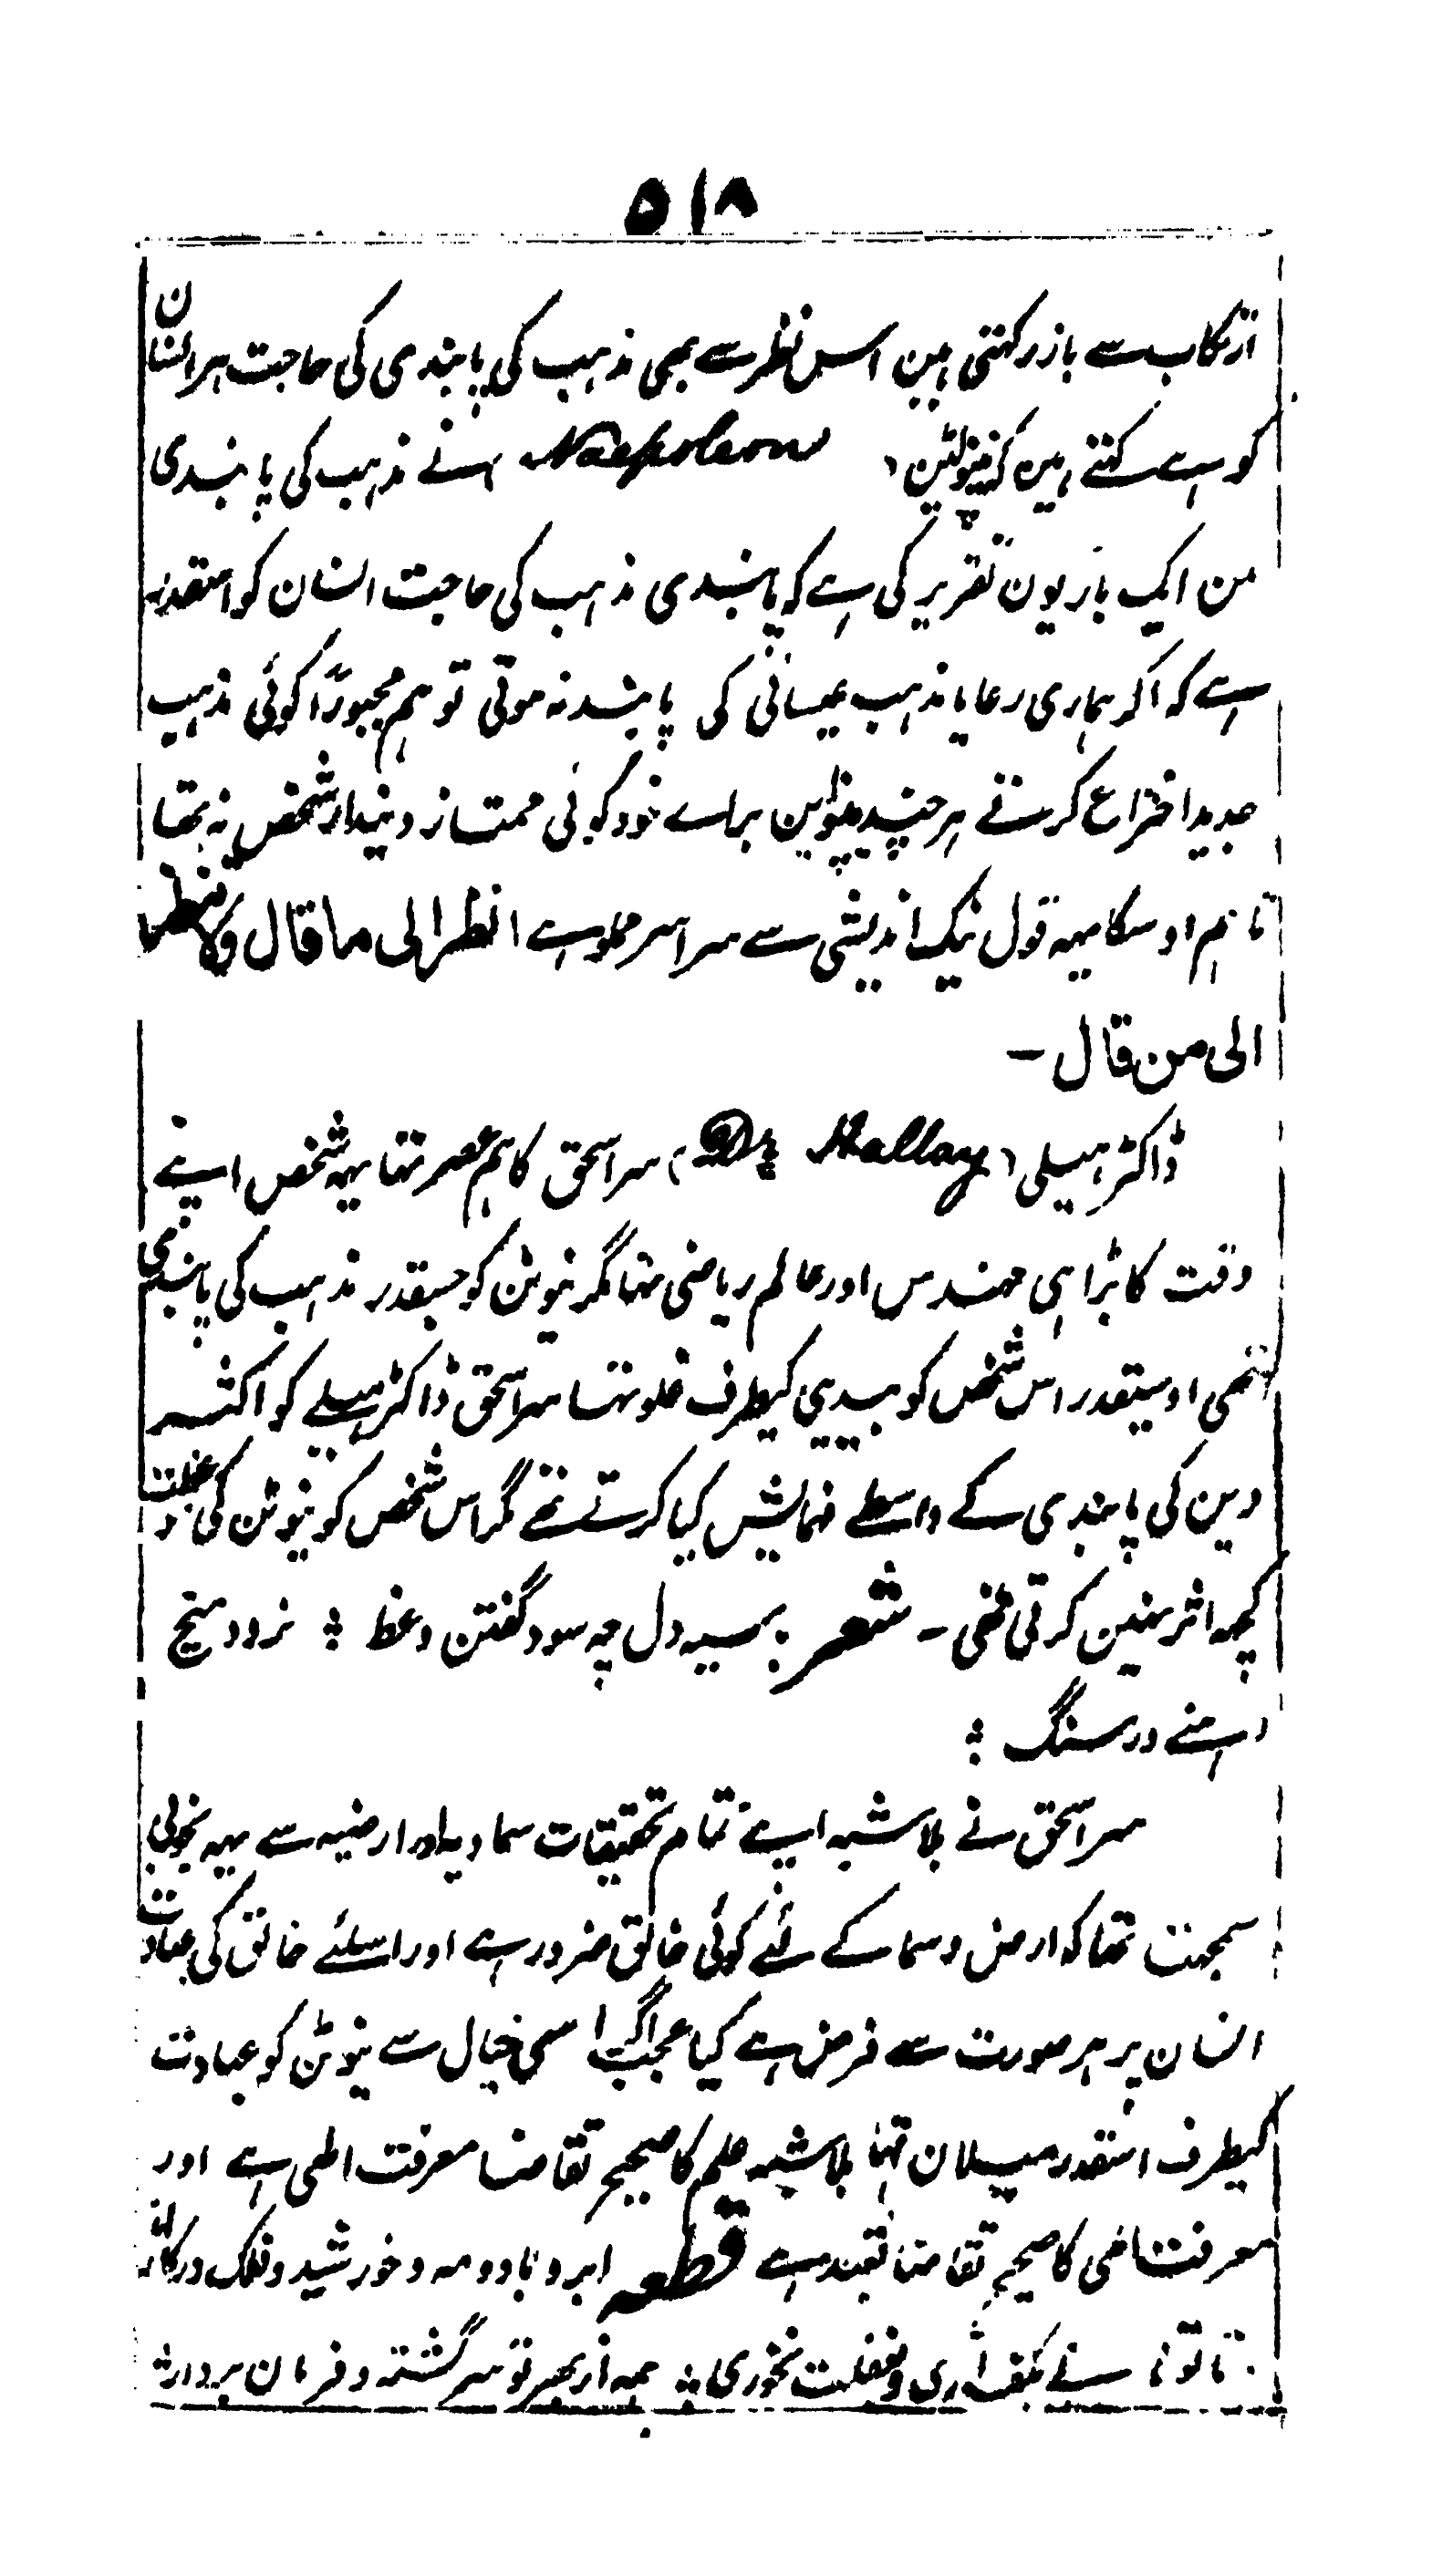 ۵۱۸
ارتکاب سے باز رکھتی ہین اس نظر سے بھی مذہب کی پابندی کی حاجت ہر انسان
کو ہے کہتے ہین کہ نپولین ( Naepoleon ) نے مذہب کی پابندی
مین ایک بار یون تقریر کی ہے کہ پابندی مذہب کی حاجت انسان کو اسقدر
ہے کہ اگر ہماری رعایا مذہب عیسائی کی پابند نہ ہوتی تو ہم مجبوراً کوئی مذہب
جدید اختراع کرتے ہر چند نپولین براے خود کوئی ممتاز دیندار شخص نہ تھا
تاہم اوسکا یہہ قول نیک اندیشی سے سراسر مملو ہے انظر الی ما قال ولا تنظر
الی من قال -
ڈاکٹر ہیلی ( Dr Hallay ) سر اسحق کا ہم عصر تھا یہہ شخص اپنے
وقت کا بڑا ہی مہندس اور عالم ریاضی تھا مگر نیوٹن کو جسقدر مذہب کی پابندی
تھی اوسیقدر اس شخص کو بیدینی کیطرف غلو تھا سر اسحق ڈاکٹر ہیلے کو اکثر
دین کی پابندی کے واسطے فہمایش کیا کرتے تھے مگر اس شخص کو نیوٹن کی
کچھہ اثر نہین کرتی تھی - شعر بر سیہ دل چہ سود گفتن وعظ ؛ نرود میخ
آہنے در سنگ ؛
سر اسحق نے بلاشبہ اپنے تمام تحقیقات سماویہ اور ارضیہ سے یہہ بخوبی
سمجھتا تھا کہ ارض و سما کے لئے کوئی خالق ضرور ہے اور اسلئے خالق کی عبادت
انسان پر ہر صورت سے فرض ہے کیا عجب اگر اسی خیال سے نیوٹن کو عبادت
کیطرف اسقدر میلان تھا بلاشبہ علم کا صحیح تقاضا معرفت الٰہی ہے اور
معرفت الٰہی کا صحیح تقاضا تعبد ہے قطعہ ابر و باد و مہ و خورشید و فلک در کارند
تا تو نانے بکف آری و بغفلت نخوری ؛ ہمہ از بہر تو سرگشتہ و فرمان بردار ؛